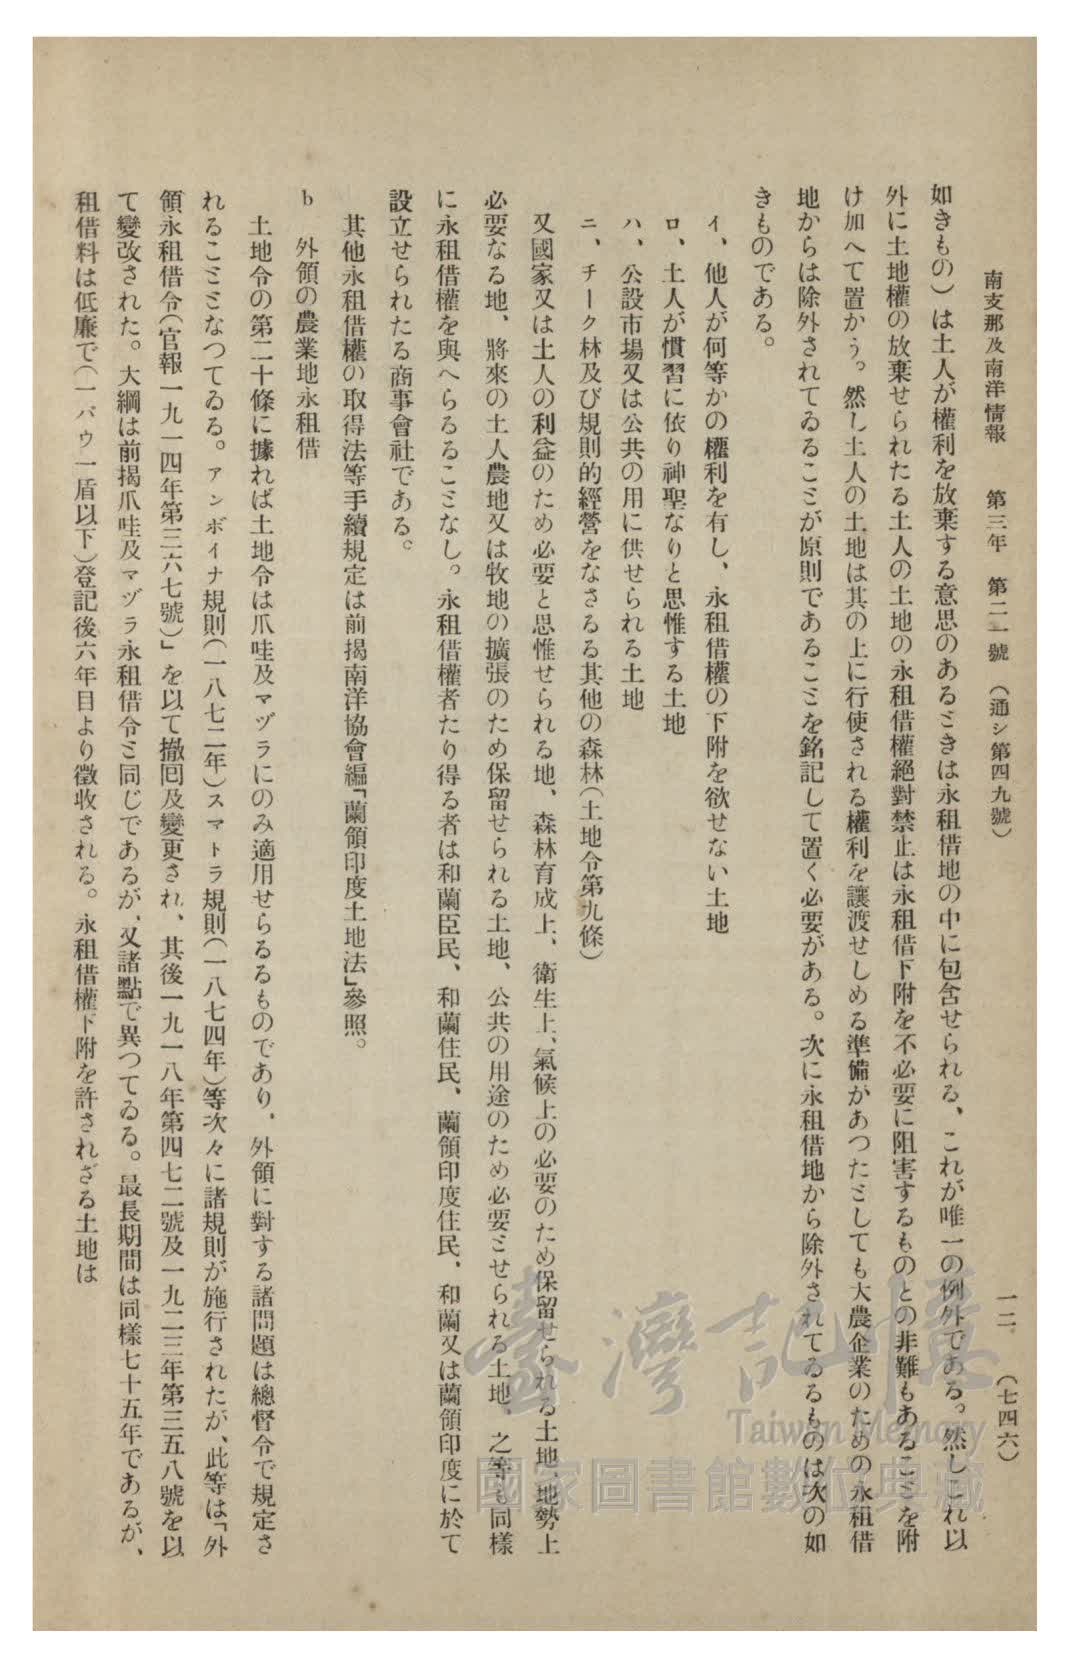 南支那及南洋情報　第三年　第二一號　（通シ第四九號）　一二　（七四六）
如きもの）は土人が權利を放棄する意思のあるときは永租借地の中に包含せられる、これが唯一の例外である。然しこれ以
外に土地權の放棄せられたる土人の土地の永租借權絕對禁止は永租借下附を不必要に阻害するものとの非難もあることを附
け加へて置かう。然し土人の土地は其の上に行使される權利を讓渡せしめる準備があつたとしても大農企業のための永租借
地からは除外されてゐることが原則であることを銘記して置く必要がある。次に永租借地から除外されてゐるものは次の如
きものである。
イ、他人が何等かの權利を有し、永租借權の下附を欲せない土地
ロ、土人が慣習に依り神聖なりと思惟する土地
ハ、公設市場又は公共の用に供せられる土地
ニ、チーク林及び規則的經營をなさるる其他の森林（土地令第九條）
又國家又は土人の利益のため必要と思惟せられる地、森林育成上、衛生上、氣候上の必要のため保留せられる土地、地勢上
必要なる地、將來の土人農地又は牧地の擴張のため保留せられる土地、公共の用途のため必要とせられる土地、之等も同樣
に永租借權を與へらるることなし。永租借權者たり得る者は和蘭臣民、和蘭住民、蘭領印度住民、和蘭又は蘭領印度に於て
設立せられたる商事會社である。
其他永租借權の取得法等手續規定は前揭南洋協會編「蘭領印度土地法」參照。
b　外領の農業地永租借
土地令の第二十條に據れば土地令は爪哇及マヅラにのみ適用せらるるものであり、外領に對する諸問題は總督令で規定さ
れることとなつてゐる。アンボイナ規則（一八七二年）スマトラ規則（一八七四年）等次々に諸規則が施行されたが、此等は「外
領永租借令（官報一九一四年第三六七號）」を以て撤囘及變更され、其後一九一八年第四七二號及一九二三年第三五八號を以
て變改された。大綱は前揭爪哇及マヅラ永租借令と同じであるが、又諸點で異つてゐる。最長期間は同樣七十五年であるが、
租借料は低廉で（一バウ一盾以下）登記後六年目より徵收される。永租借權下附を許されざる土地は
臺灣記憶
Taiwan Memory
國家圖書館數位典藏